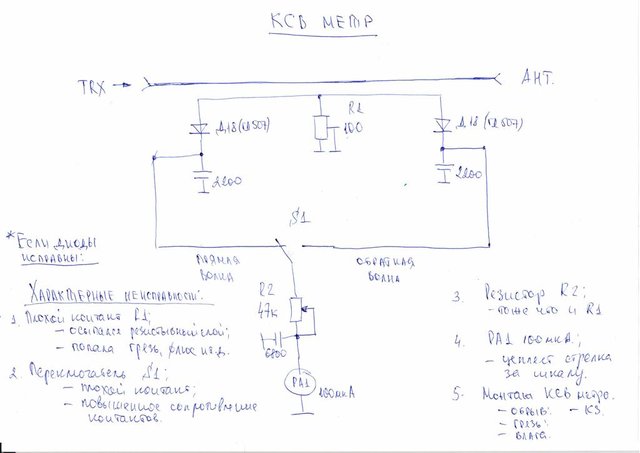 КСВ МЕТР
TRX → АНТ.
Д18 (КД507)
R1
100
Д18 (КД507)
2200
2200
S1
*Если диоды
исправны:
ПРЯМАЯ
ВОЛНА
ОБРАТНАЯ
ВОЛНА
R2
47к
6800
PA1
100мкА
Характерные неисправности:
1. Плохой контакт R1;
– осыпался резистивный слой;
– попала грязь, флюс и т.д.
2. Переключатель S1;
– плохой контакт;
– повышенное сопротивление
контактов.
3. Резистор R2;
– тоже что и R1
4. PA1 100мкА;
– цепляет стрелка
за шкалу.
5. Монтаж КСВ метра.
– обрыв; – КЗ.
– грязь;
– влага.